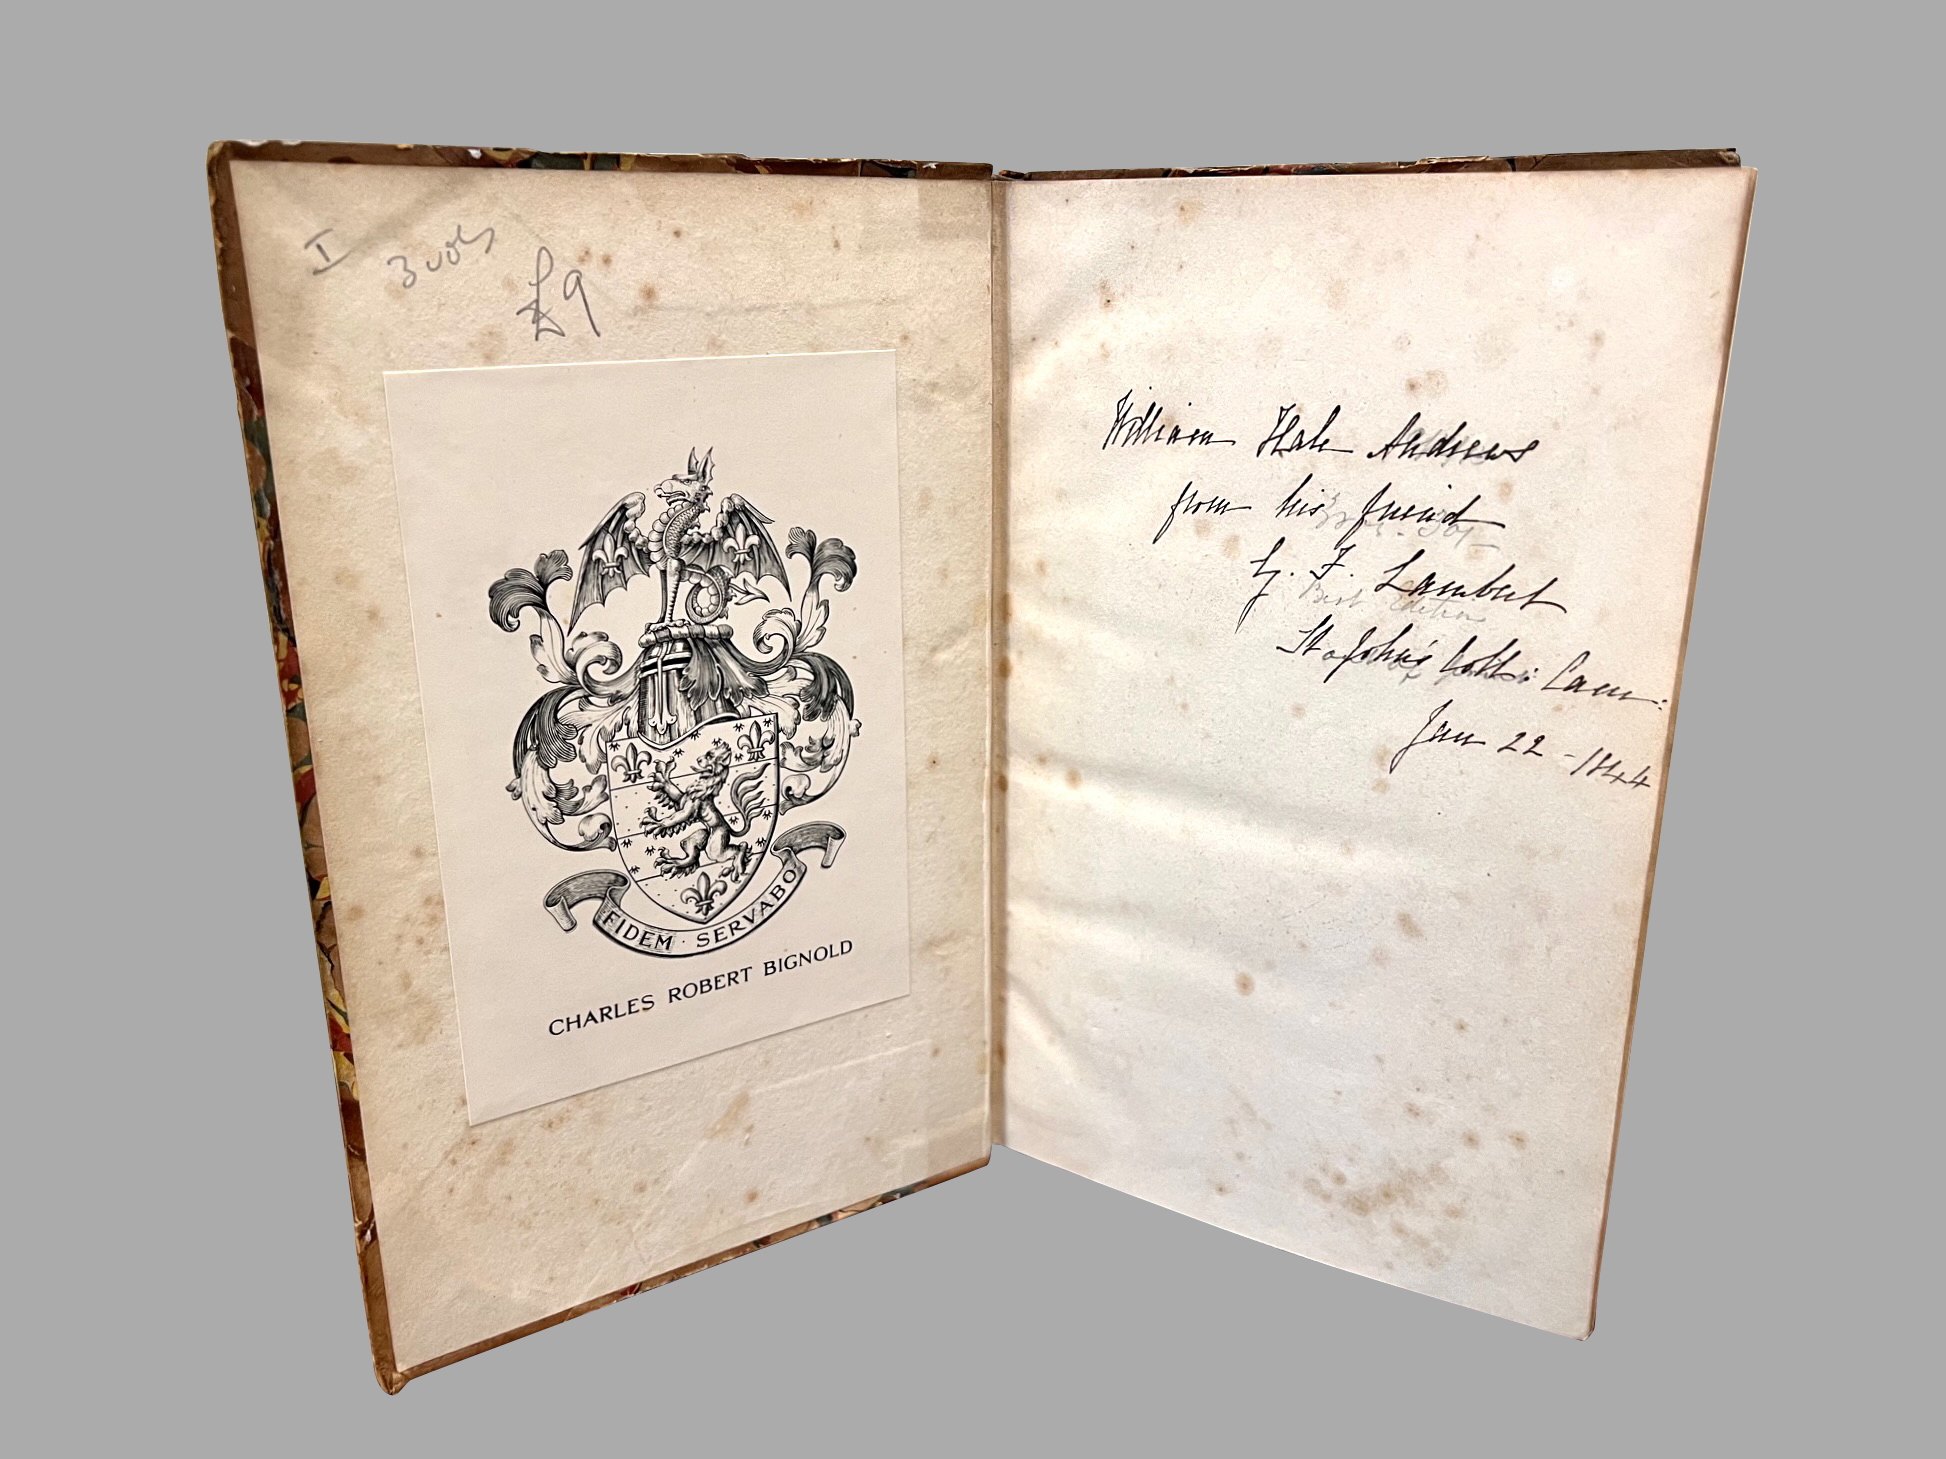 I
3 vols
£9
FIDEM · SERVABO
CHARLES ROBERT BIGNOLD
William Hale Andrews
from his friend
F. Lambert
St John's Coll: Cam:
Jan 22 - 1844
Best Edition